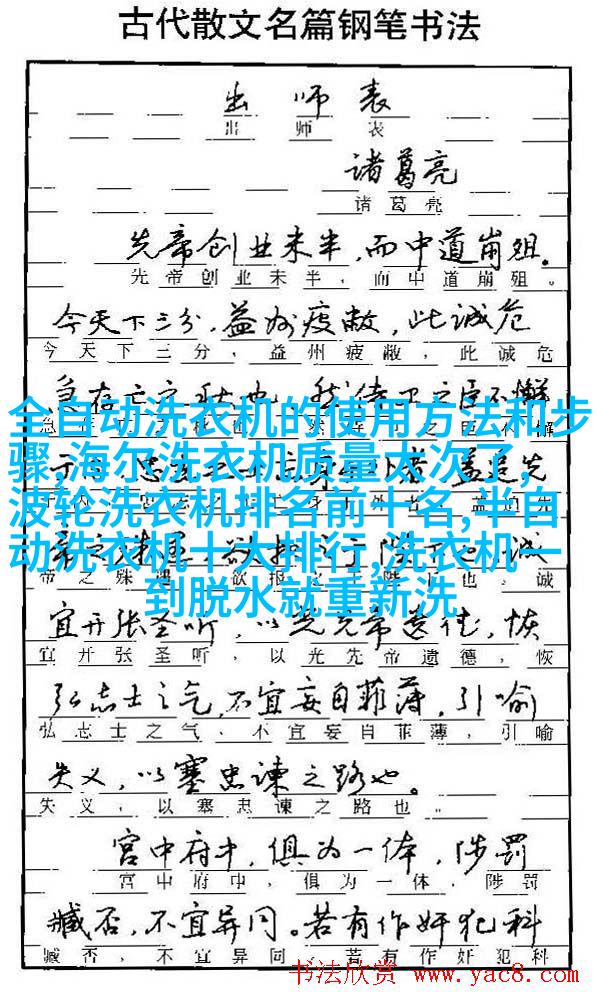 古代散文名篇钢笔书法
出师表
出师表
诸葛亮
诸葛亮
先帝创业未半,而中道崩殂。
先帝创业未半,而中道崩殂。
今天下三分,益州疲敝,此诚危
今天下三分,益州疲敝,此诚危
急存亡之秋也 然侍卫之臣不懈
全自动洗衣机的使用方法和步
骤,海尔洗衣机质量太次了,
波轮洗衣机排名前十名,半自
动洗衣机十大排行,洗衣机一
到脱水就重新洗
帝之殊遇 欲报之 陛下也,诚
宜开张圣听,以光先帝遗德,恢
宜开张圣听,以光先帝遗德,恢
弘志士之气,不宜妄自菲薄,引喻
弘志士之气,不宜妄自菲薄,引喻
失义,以塞忠谏之路也。
失义,以塞忠谏之路也。
宫中府中,俱为一体,陟罚
宫中府中,俱为一体,陟罚
臧否,不宜异同。若有作奸犯科
臧否,不宜异同。若有作奸犯科
书法欣赏 www.yac8.com